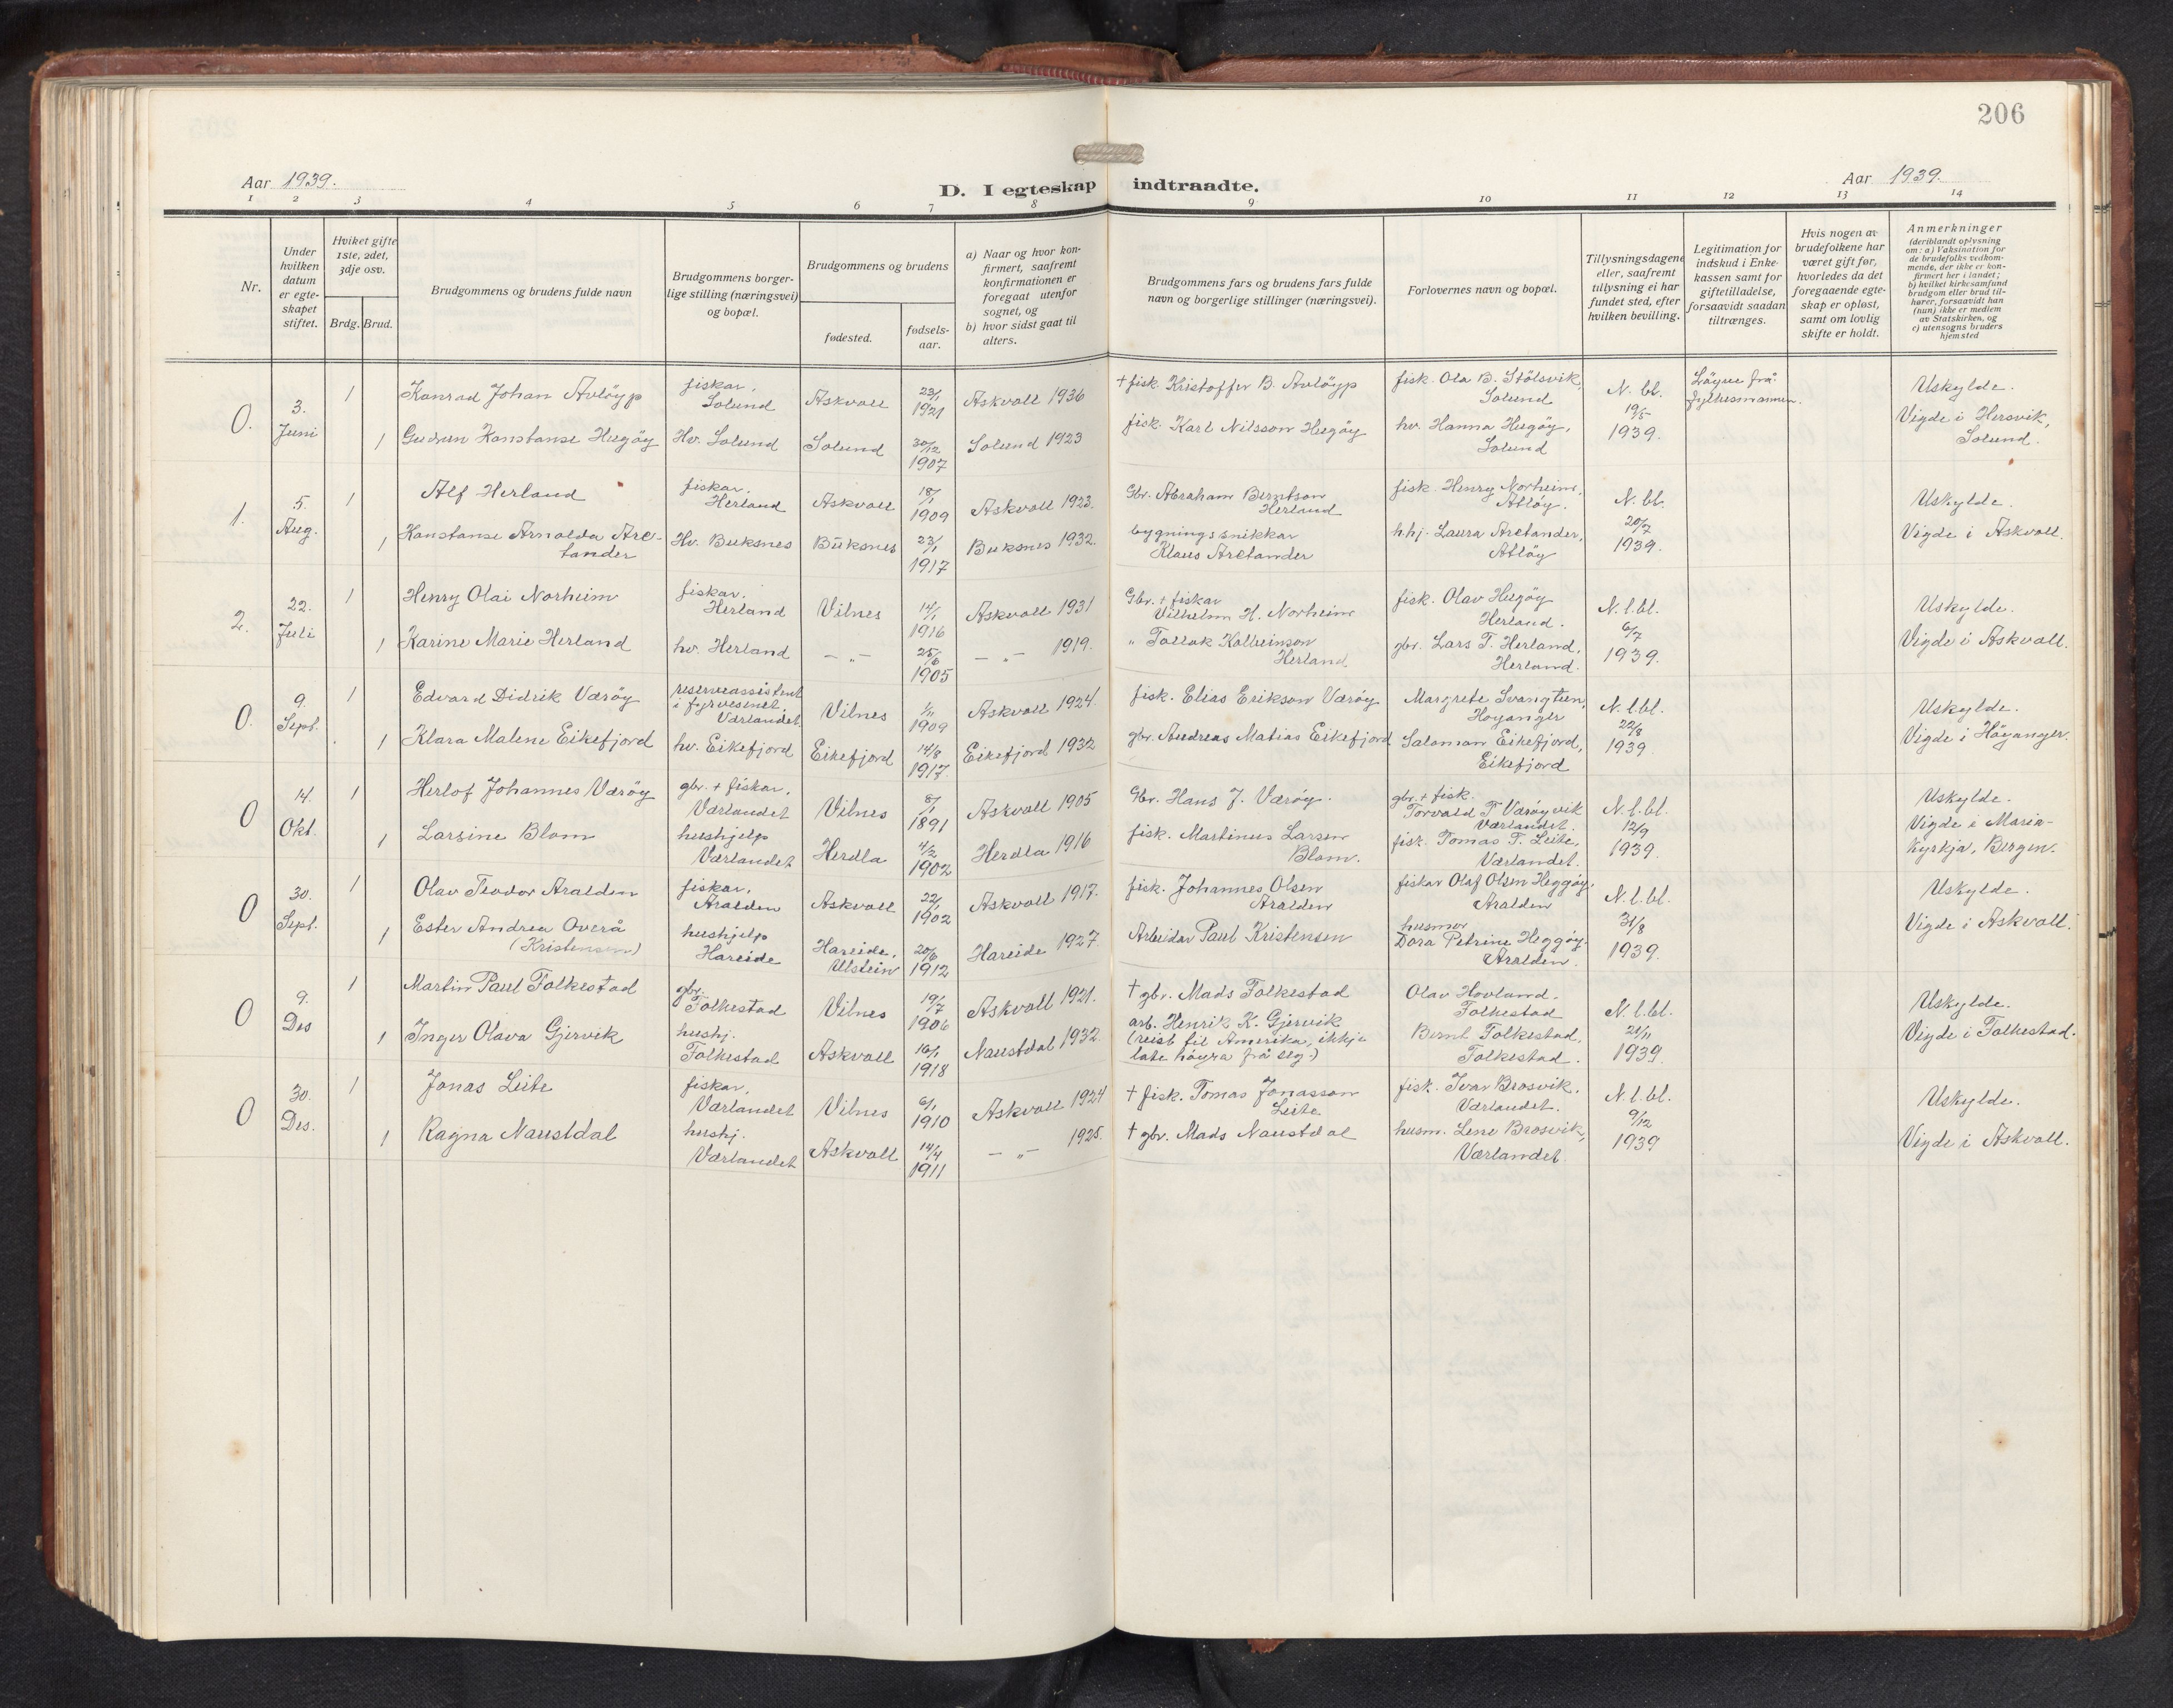 206
Aar 1939.
D. I egteskap indtraadte.
Aar 1939.
1 2 3 4 5 6 7 8 9 10 11 12 13 14
Nr.
Under hvilken datum er egteskapet stiftet.
Hvilket gifte 1ste, 2det, 3dje osv.
Brdg. Brud.
Brudgommens og brudens fulde navn
Brudgommens borgerlige stilling (næringsvei) og bopæl.
Brudgommens og brudens
fødested.
fødselsaar.
a) Naar og hvor konfirmert, saafremt konfirmationen er foregaat utenfor sognet, og
b) hvor sidst gaat til alters.
Brudgommens fars og brudens fars fulde navn og borgerlige stillinger (næringsvei).
Forlovernes navn og bopæl.
Tillysningsdagene eller, saafremt tillysning ei har fundet sted, efter hvilken bevilling.
Legitimation for indskud i Enkekassen samt for giftetilladelse, forsaavidt saadan tiltrænges.
Hvis nogen av brudefolkene har været gift før, hvorledes da det foregaaende egteskap er opløst, samt om lovlig skifte er holdt.
Anmerkninger
(deriblandt oplysning om: a) Vaksination for de brudefolks vedkommende, der ikke er konfirmert her i landet; b) hvilket kirkesamfund brudgom eller brud tilhører, forsaavidt han (hun) ikke er medlem av Statskirken, og c) utensogns bruders hjemsted
0. 3. Juni 1 Konrad Johan Avløyp fiskar, Solund Askvoll 23/1 1921 Askvoll 1936 † fisk. Kristoffer B. Avløyp fisk. Ola B. Stölsvik, Solund N. bl. 19/5 1939. Löyve frå fylkesmannen. Uskylde.
1 Gudrun Konstanse Hugøy Hv. Solund Solund 30/12 1907 Solund 1923 fisk. Karl Nilsson Hugøy hv. Hanna Hugøy, Solund Vigde i Hersvik, Solund.
1. 5. Aug. 1 Alf Herland fiskar, Herland Askvoll 18/1 1909 Askvoll 1923. Gbr. Abraham Berntson Herland fisk. Henry Norheim, Atløy. N. bl. 20/7 1939. Uskylde.
1 Konstanse Arnolda Arctander Hv. Buksnes Buksnes 23/1 1917 Buksnes 1932. bygningssnikkar Klaus Arctander h.hj. Laura Arctander, Atløy Vigde i Askvoll.
2. 22. Juli 1 Henry Olai Norheim fiskar, Herland Vilnes 14/1 1916 Askvoll 1931 Gbr. + fiskar Vilhelm H. Norheim fisk. Olav Hugøy Herland. N. l. bl. 6/7 1939. Uskylde.
1 Karine Marie Herland hv. Herland — „ — 25/6 1905 — „ — 1919. „ Tollak Kolbeinson Herland gbr. Lars T. Herland, Herland. Vigde i Askvoll.
0. 9. Sept. 1 Edvard Didrik Værøy reserveassistent i fyrvesenet. Værlandet Vilnes 1/11 1909 Askvoll 1924. fisk. Elias Erikson Værøy Margrete Svangtun, Høyanger N. l. bl. 22/8 1939 Uskylde.
1 Klara Malene Eikefjord hv. Eikefjord Eikefjord 14/8 1917. Eikefjord 1932 gbr. Andreas Matias Eikefjord Salomon Eikefjord, Eikefjord Vigde i Höyanger.
0 14. Okt. 1 Herlof Johannes Værøy gbr. + fiskar, Værlandet Vilnes 8/1 1891 Askvoll 1905 Gbr. Hans J. Værøy. gbr. + fisk. Torvald T. Værøyvik Værlandet. N. l. bl. 12/9 1939. Uskylde.
1 Larsine Blom hushjelp Værlandet Herdla 4/2 1902 Herdla 1916 fisk. Martinus Larsen Blom. fisk. Tomas T. Leite, Værlandet. Vigde i Mariakyrkja, Bergen.
0 30. Sept. 1 Olav Teodor Aralden fiskar, Aralden Askvoll 22/1 1902 Askvoll 1917. fisk. Johannes Olsen Aralden fiskar Olaf Olsen Heggøy, Aralden N. l. bl. 31/8 1939. Uskylde.
1 Ester Andrea Overå (Kristensen) hushjelp Hareide Hareide, Ulstein 20/6 1912 Hareide 1927. Arbeidar Paul Kristensen husmor Dora Petrine Heggøy Aralden. Vigde i Askvoll.
0 9. Des 1 Martin Paul Folkestad gbr. Folkestad Vilnes 19/7 1906 Askvoll 1921. † gbr. Mads Folkestad Olav Hovland, Folkestad N. l. bl. 21/11 1939. Uskylde.
1 Inger Olava Gjervik hushj. Folkestad Askvoll 16/1 1918 Naustdal 1932. arb. Henrik K. Gjervik (reist til Amerika, ikkje late høyra frå seg.) Bernt Folkestad, Folkestad. Vigde i Folkestad.
0 30. Des. 1 Jonas Leite fiskar, Værlandet Vilnes 6/1 1910 Askvoll 1924 † fisk. Tomas Jonasson Leite fisk. Ivar Brosvik, Værlandet. N. l. bl. 9/12 1939 Uskylde.
1 Ragna Naustdal hushj. Værlandet Askvoll 14/4 1911 — „ — 1925. † gbr. Mads Naustdal husm. Lene Brosvik, Værlandet. Vigde i Askvoll.